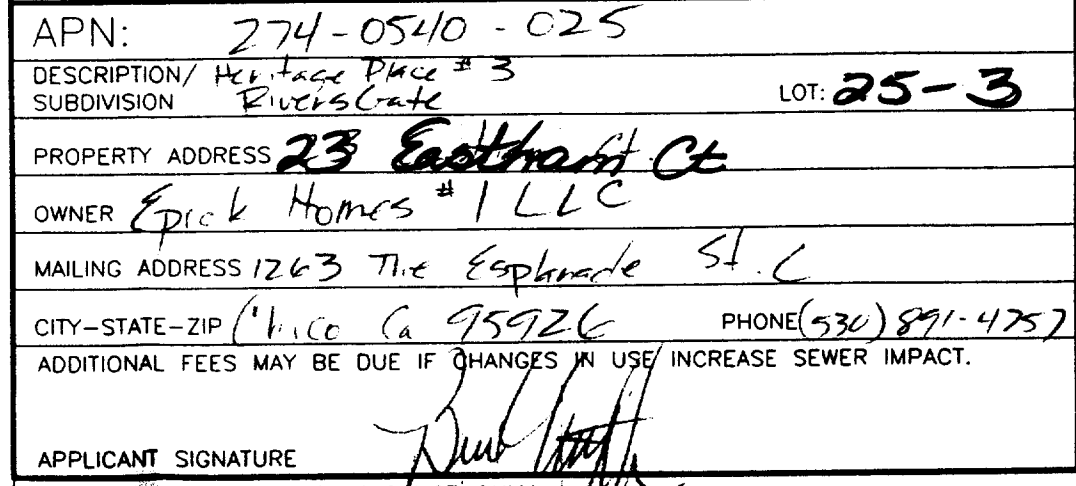 APN: 274-0540-025
DESCRIPTION/ Heritage Place # 3
SUBDIVISION RiversGate
LOT: 25-3
PROPERTY ADDRESS 23 Eastham Ct
OWNER Epick Homes #1 LLC
MAILING ADDRESS 1263 The Esplanade St. C
CITY-STATE-ZIP Chico Ca 95926 PHONE (530) 891-4757
ADDITIONAL FEES MAY BE DUE IF CHANGES IN USE INCREASE SEWER IMPACT.
APPLICANT SIGNATURE